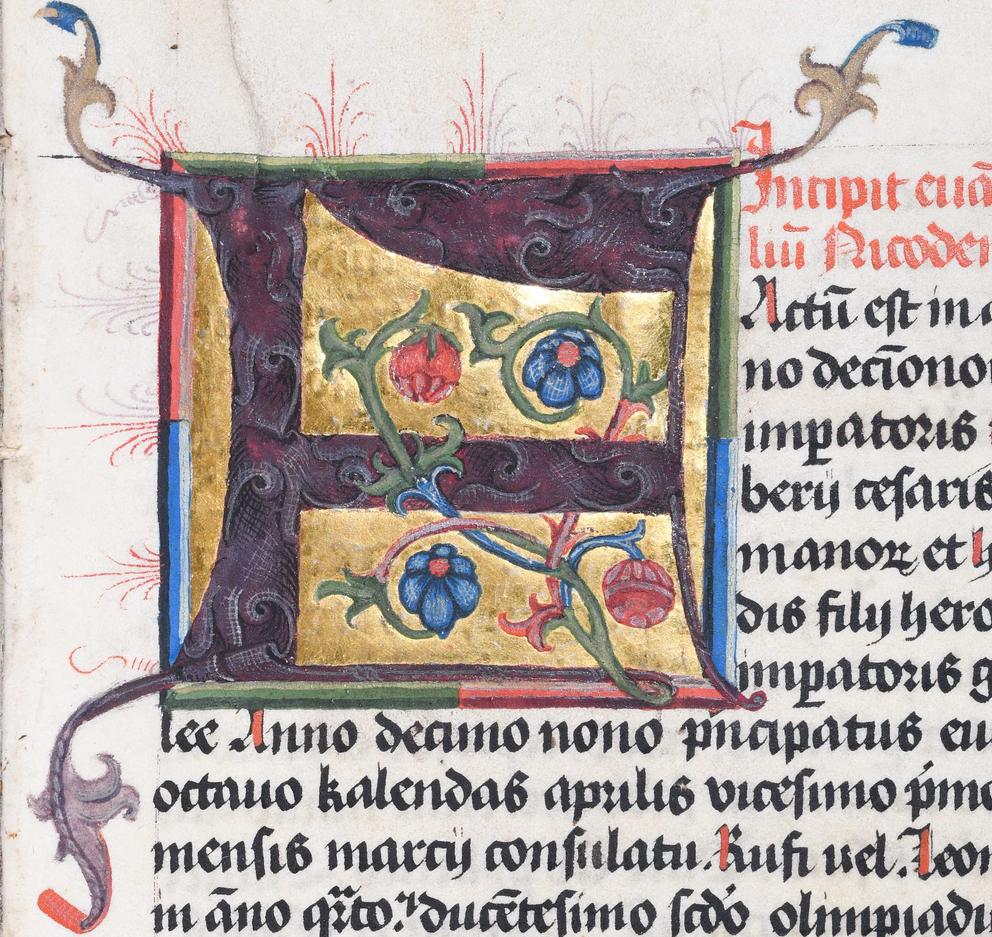 Incipit euā
liū Nicodem
F
Actū est in a
no deciōnono
imꝑatoris
berij cesaris
manoꝝ et h
dis filij hero
imꝑatoris g
lee Anno decimo nono pͥncipatus eu
octauo kalendas aprilis vicesimo pͥmo
mensis marcij consulatu. Rufi uel. Leon
in āno qͣrto. ducētesimo scdo olimpiadu